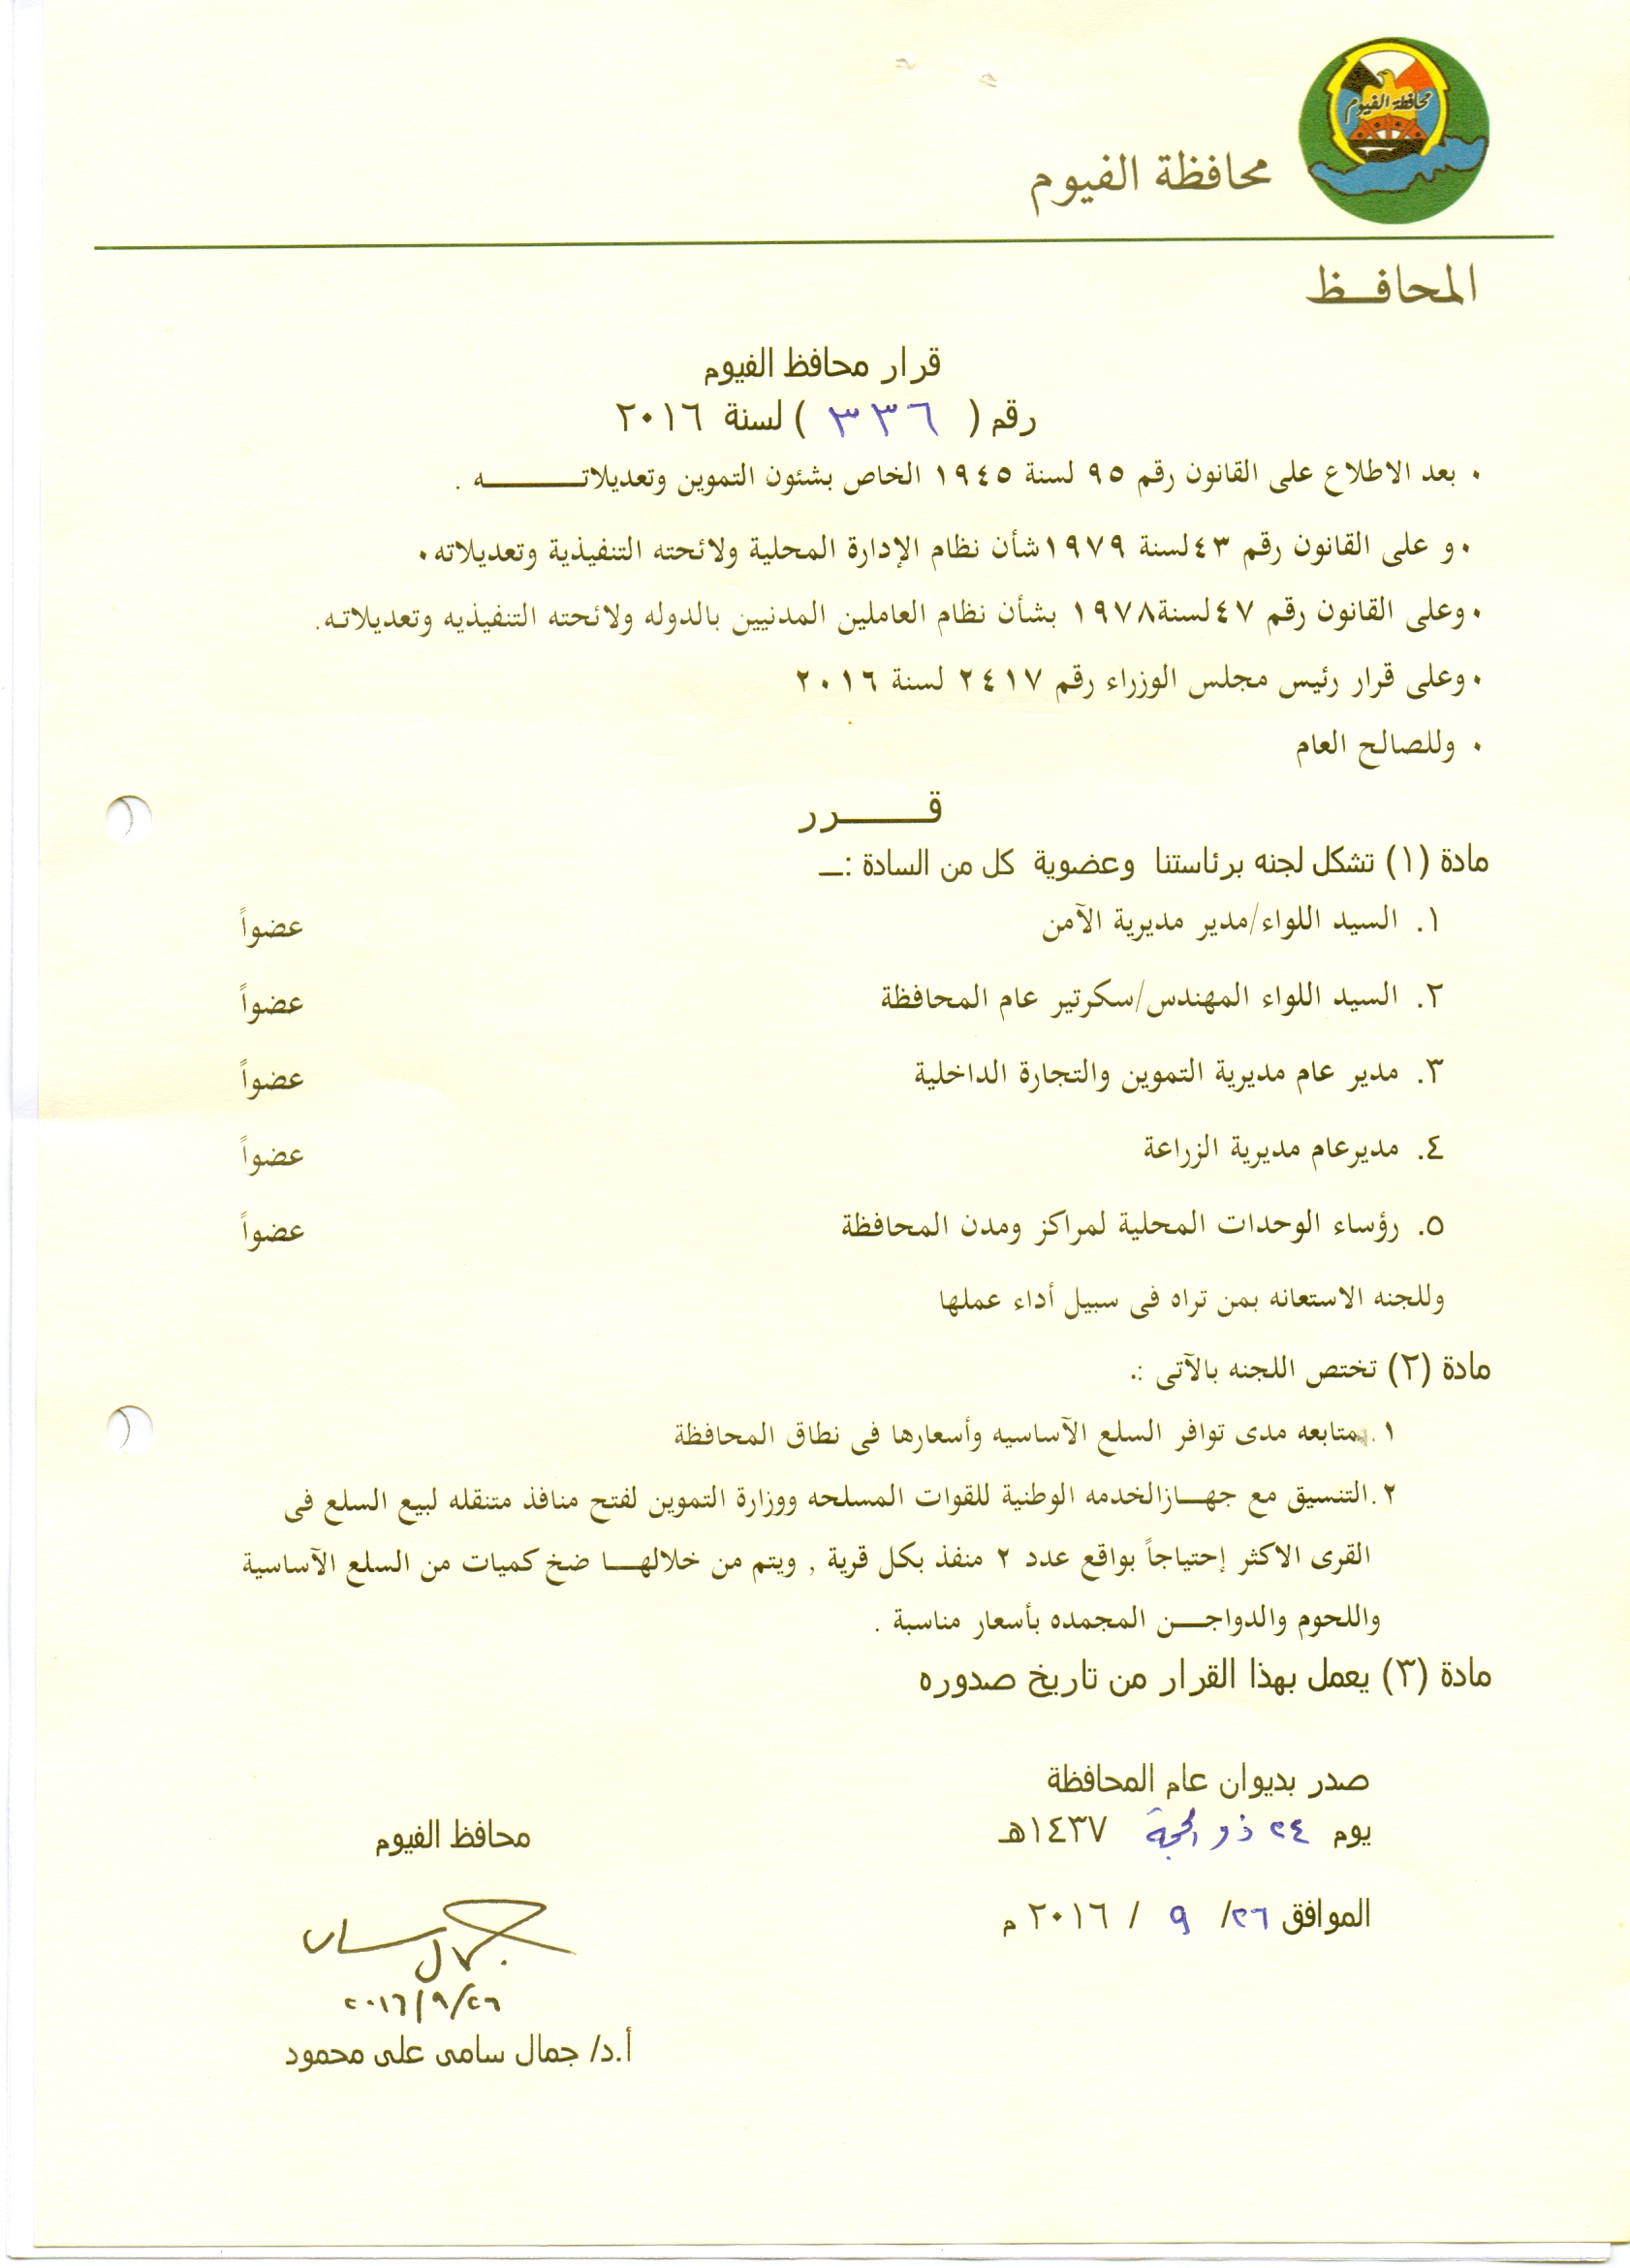 محافظة الفيوم
محافظة الفيوم
المحافــظ
قرار محافظ الفيوم
رقم ( ٣٣٦ ) لسنة ٢٠١٦
٠ بعد الاطلاع على القانون رقم ٩٥ لسنة ١٩٤٥ الخاص بشئون التموين وتعديلاتــــــــه .
٠ و على القانون رقم ٤٣لسنة ١٩٧٩شأن نظام الإدارة المحلية ولائحته التنفيذية وتعديلاته٠
٠ وعلى القانون رقم ٤٧لسنة١٩٧٨ بشأن نظام العاملين المدنيين بالدوله ولائحته التنفيذيه وتعديلاتـه.
٠ وعلى قرار رئيس مجلس الوزراء رقم ٢٤١٧ لسنة ٢٠١٦
٠ وللصالح العام
قـــــــرر
مادة (١) تشكل لجنه برئاستنا وعضوية كل من السادة :ـــ
١. السيد اللواء/مدير مديرية الآمن عضواً
٢. السيد اللواء المهندس/سكرتير عام المحافظة عضواً
٣. مدير عام مديرية التموين والتجارة الداخلية عضواً
٤. مديرعام مديرية الزراعة عضواً
٥. رؤساء الوحدات المحلية لمراكز ومدن المحافظة عضواً
وللجنه الاستعانه بمن تراه فى سبيل أداء عملها
مادة (٢) تختص اللجنه بالآتى :.
١. متابعه مدى توافر السلع الآساسيه وأسعارها فى نطاق المحافظة
٢.التنسيق مع جهــازالخدمه الوطنية للقوات المسلحه ووزارة التموين لفتح منافذ متنقله لبيع السلع فى
القرى الاكثر إحتياجاً بواقع عدد ٢ منفذ بكل قرية , ويتم من خلالهــا ضخ كميات من السلع الآساسية
واللحوم والدواجــن المجمده بأسعار مناسبة .
مادة (٣) يعمل بهذا القرار من تاريخ صدوره
صدر بديوان عام المحافظة
يوم ٢٤ ذو الحجة ١٤٣٧هـ
الموافق ٢٦/ ٩ / ٢٠١٦ م
محافظ الفيوم
جمال سامى
٢٠١٦/٩/٢٦
أ.د/ جمال سامى على محمود